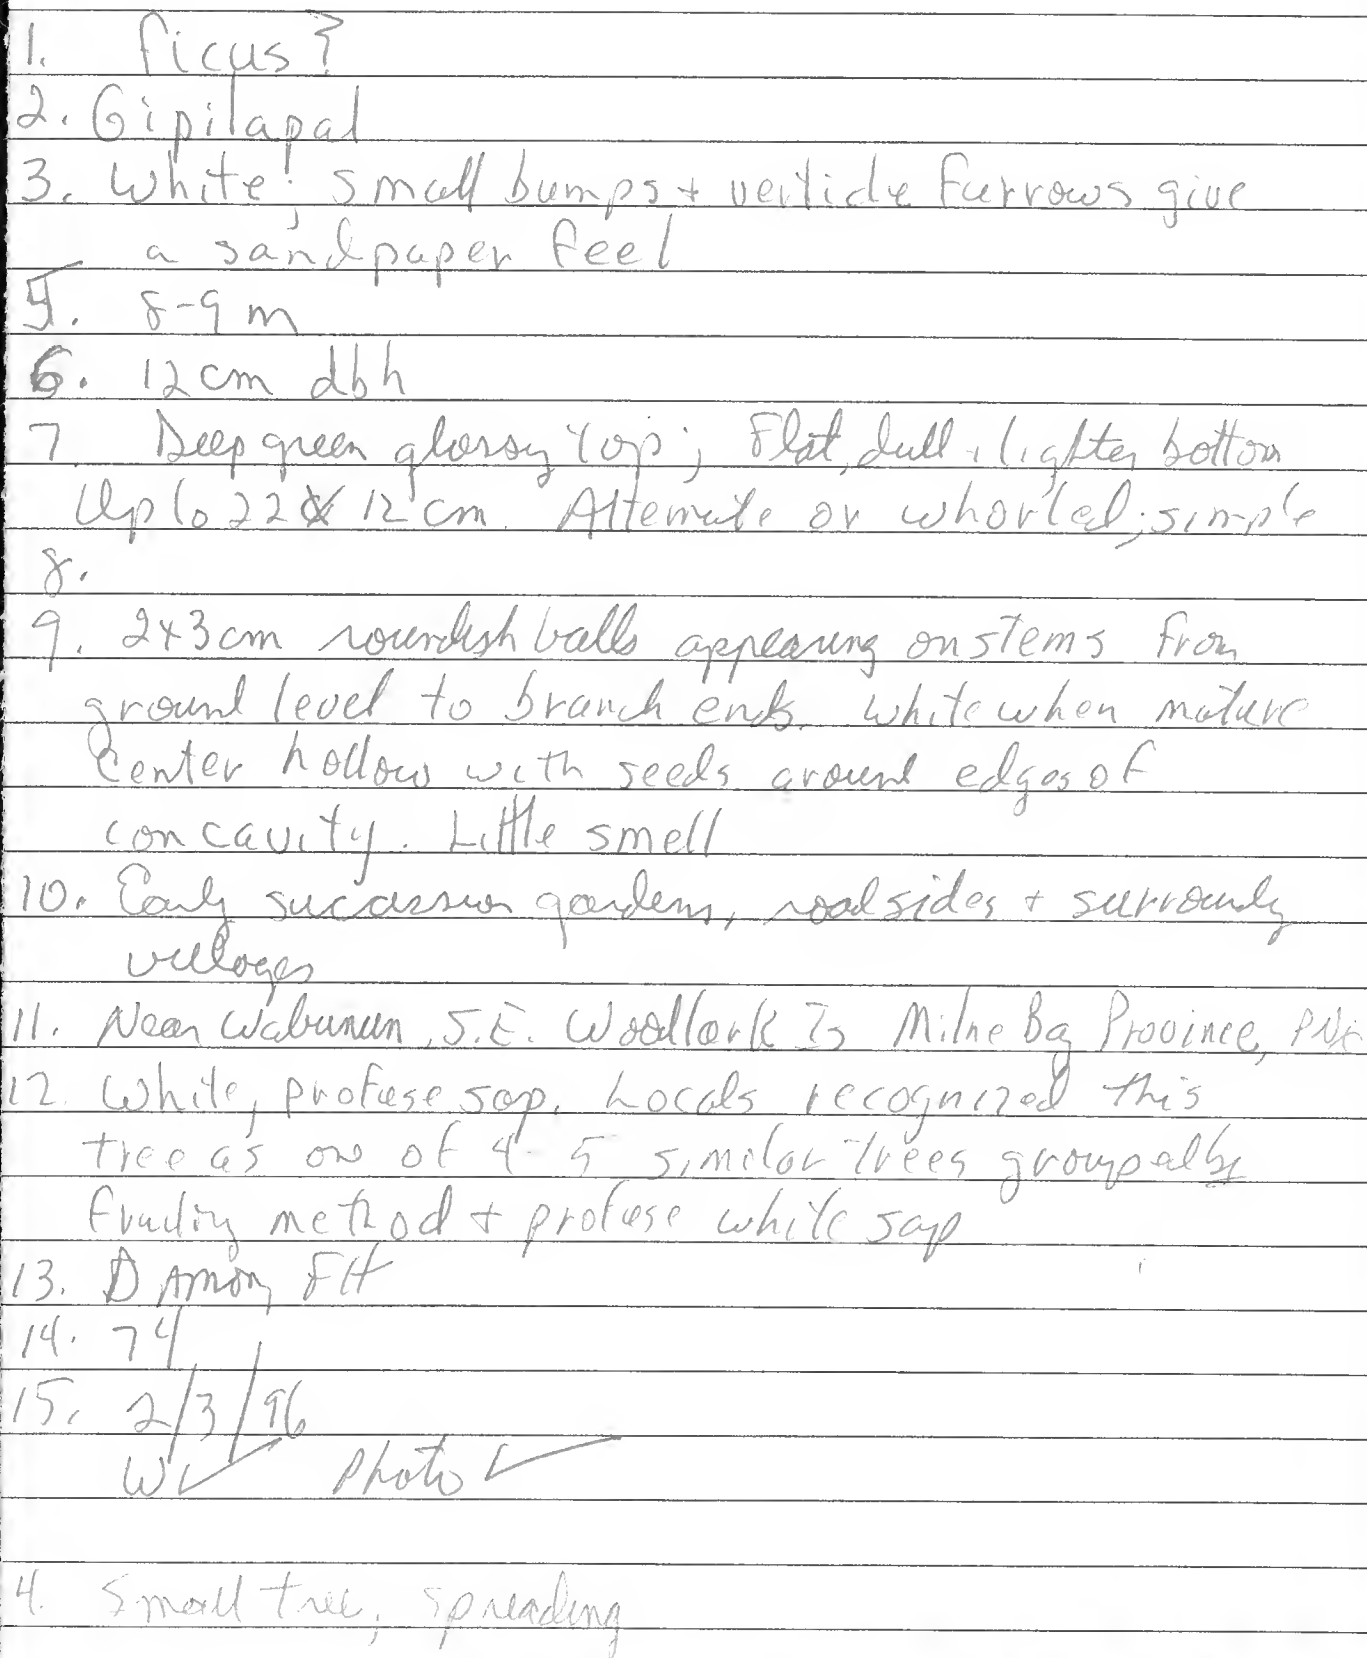 1. Ficus?
2. Gipilapal
3. White; small bumps + verticle furrows give
a sandpaper feel
5. 8-9 m
6. 12 cm dbh
7 Deep green glossy top; Flat, dull + lighter bottom
Up to 22 x 12 cm. Alternate or whorled; simple
8.
9. 2x3cm roundish balls appearing on stems from
ground level to branch ends. White when mature
Center hollow with seeds around edges of
concavity. Little smell
10. Early succession gardens, roadsides + surroundg
villages
11. Near Wabunun, S.E. Woodlark Is Milne Bay Province, PNG
12. White, profuse sap. Locals recognized this
tree as one of 4-5 similar trees grouped by
fruiting method + profuse white sap
13. D Amon, FH
14. 74
15. 2/3/96
W✓ Photo ✓
4. Small tree, spreading